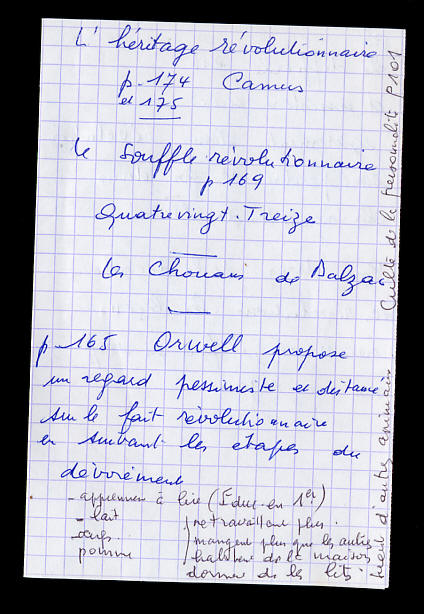 L'héritage révolutionnaire
p. 174 Camus
et 175
le souffle révolutionnaire
p 169
Quatrevingt-Treize
les Chouans de Balzac
p. 165 Orwell propose
un regard pessimiste et distancié
sur le fait révolutionnaire
en suivant les étapes du
dévoiement
- apprennent à lire (Educ. en 1er)
- lait
œufs
pomme
ne travaillent plus.
mangent plus que les autres
habitent de la maison
dorment ds les lits
tuent d'autres animaux
Culte de la personnalité p 101